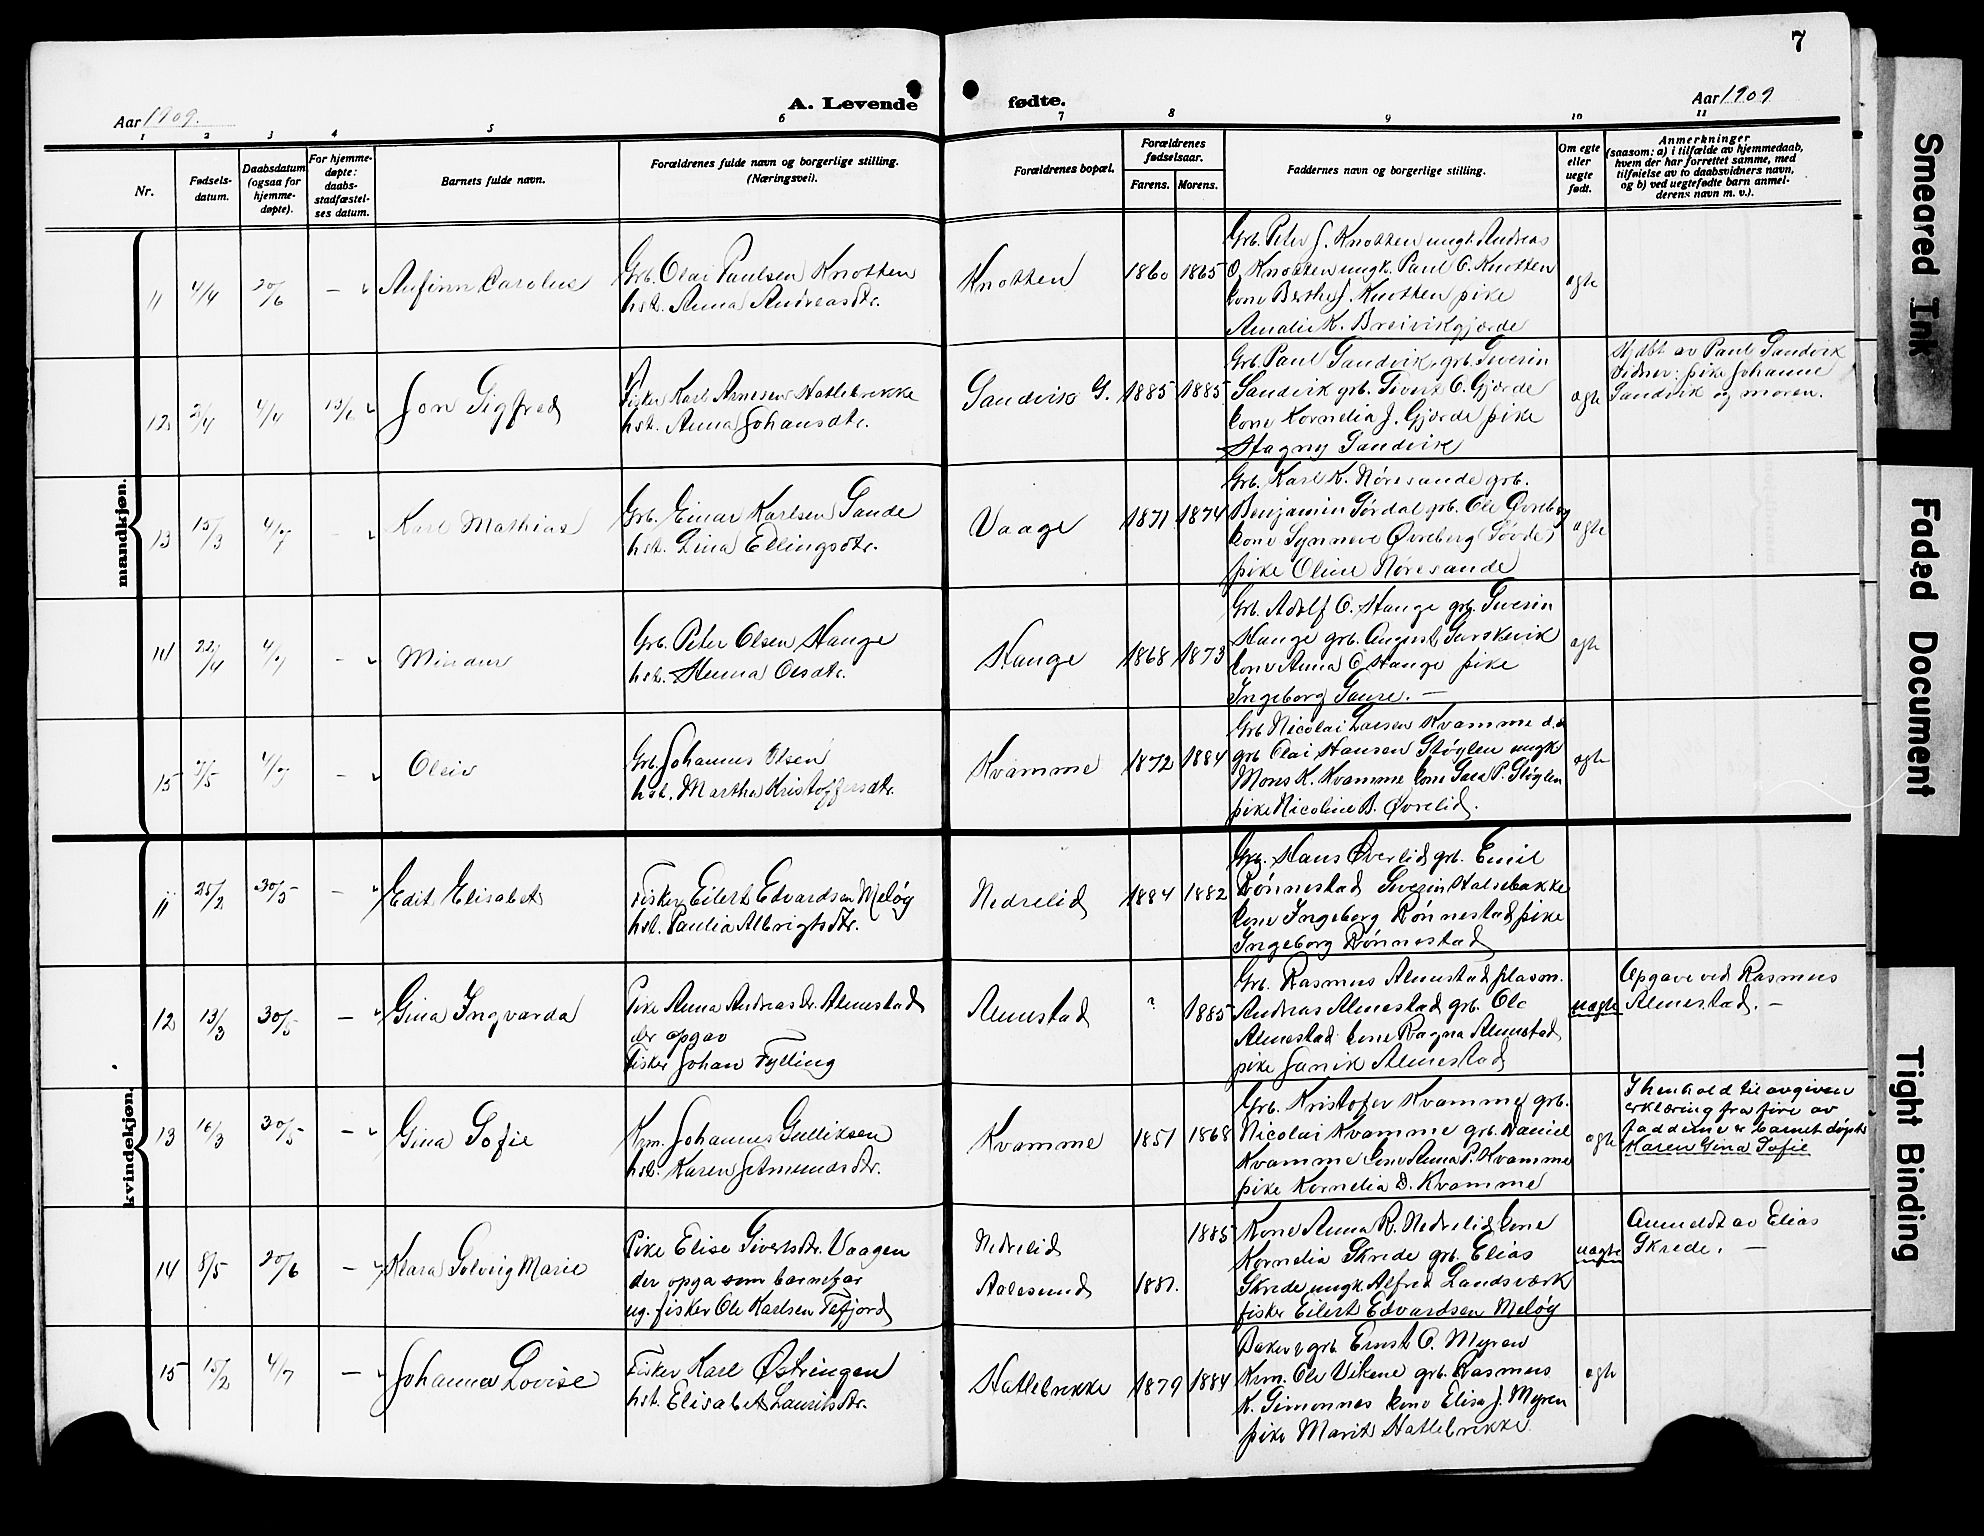 7
Aar 1909.
A. Levende fødte.
Aar 1909
1 2 3 4 5 6 7 8 9 10 11
Nr.
Fødsels-
datum.
Daabsdatum
(ogsaa for
hjemme-
døpte).
For hjemme-
døpte:
daabs-
stadfæstel-
ses datum.
Barnets fulde navn.
Forældrenes fulde navn og borgerlige stilling.
(Næringsvei).
Forældrenes bopæl.
Forældrenes
fødselsaar.
Farens. Morens.
Faddernes navn og borgerlige stilling.
Om egte
eller
uegte
født.
Anmerkninger
(saasom: a) i tilfælde av hjemmedaab,
hvem der har forrettet samme, med
tilføielse av to daabsvidners navn,
og b) ved uegtefødte barn anmel-
derens navn m. v.).
mandkjøn.
11 4/4 20/6 - Anfinn Carolus
Grb. Olai Paulsen Knotten
hst. Anna Andreasdtr.
Knotten 1860 1865
Grb. Peter J. Knotten ungk. Andreas
O. Knotten ungk. Paul O. Knotten
kone Berthe J. Knotten pike
Amalie K. Breivikgjerde
egte
12 2/4 4/4 13/6 Jon Sigfred
Fisker Karl Arnesen Hatlebrekke
hst. Anna Johansdtr.
Sandvik G. 1885 1885
Grb. Paul Sandvik, grb. Severin
Sandvik grb. Sivert O. Gjerde
kone Kornelia J. Gjerde pike
Hagny Sandvik
egte
Hjdbt av Paul Sandvik
Vidner: pike Johanne
Sandvik og moren.
13 15/3 4/7 - Karl Mathias
Grb. Einar Karlsen Sande
hst. Lina Ellingsdtr.
Vaage 1871 1874
Grb. Karl K. Nøresande grb.
Benjamin Sørdal grb. Ole Øvreberg
kone Synneve Øvreberg (Søvde)
pike Oline Nøresande
egte
14 22/4 4/7 -
Grb. Peter Olsen Hauge
hst. Hanna Olsdtr.
Hauge 1868 1873
Grb. Adolf O. Hauge grb. Severin
Hauge grb. August Gurskevik
kone Anna O. Hauge pike
Ingeborg Saure. -
egte
15 7/5 4/7 - Oleiv
Grb. Johannes Olsen
hst. Martha Kristoffersdtr.
Kvamme 1872 1884
Grb. Nicolai Larsen Kvamme d.e.
grb. Olai Hansen Støylen ungk
Mons K. Kvamme kone Sara P. Støylen
pike Nicoline B. Øvrelid.
egte
kvindekjøn.
11 25/2 30/5 - Edit Elisabet
Fisker Eilert Edvardsen Meløy
hst. Paulia Albrigtsdtr.
Nedrelid 1884 1882
Grb. Hans Øverlid grb. Emil
Rønnestad Severin Halsebakke
kone Ingeborg Rønnestad pike
Ingeborg Rønnestad
12 13/3 30/5 - Gina Ingvarda
Pike Anna Andreasdtr. Almestad
der opgav
Fisker Johan Fylling
Almestad ? 1885
Grb. Rasmus Almestad
Andreas Almestad grb. Ole
Almestad kone Ragna Almestad
pike Janik Almestad
uegte
Opgave ved Rasmus
Almestad. -
13 16/3 30/5 - Gina Sofie
Krm. Johannes Gulliksen
hst. Karen J. Amundsdtr.
Kvamme 1851 1868
Grb. Kristofer Kvamme grb.
Nicolai Kvamme grb. Daniel
Kvamme kone Anna P. Kvamme
pike Kornelia D. Kvamme
egte
I henhold til avgiven
erklæring fra fire av
fadderne er barnet døpt
Karen Gina Sofie
14 8/5 20/6 - Klara Solveig Marie
Pike Elise Sivertsdtr. Vaagen
der opga som barnefar
ug. fisker Ole Karlsen Tafjord
Nedrelid
Aalesund 1881. 1885
Kone Anna R. Nedrelid, kone
Kornelia Skrede grb. Elias
Skrede ungk. Alfred Landsværk
fisker Eilert Edvardsen Meløy
uegte
Anmeldt av Elias
Skrede. -
15 15/2 4/7 - Johanna Lovise
Fisker Karl Østringen
hst. Elisabet Lauritsdtr.
Hatlebrekke 1879 1884
Baker & grb. Ernst P. Myren
Krm. Ole Vikene grb. Rasmus
K. Simonnes kone Elisa J. Myren
pike Marit Hatlebrekke
egte
Smeared Ink
Faded Document
Tight Binding